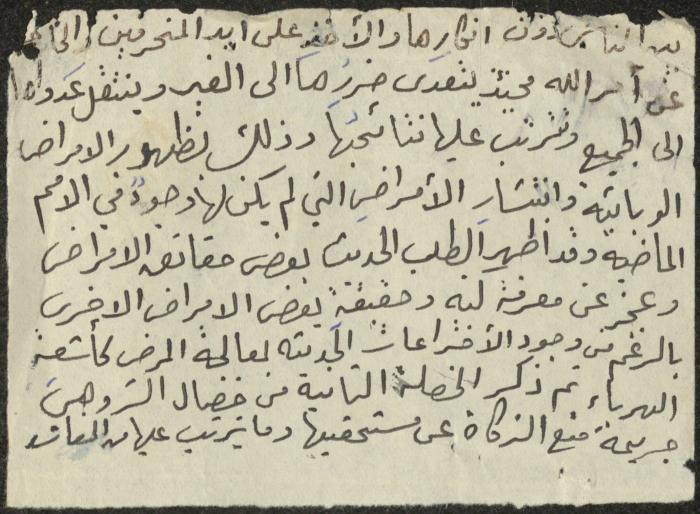 بين الناس دون انكارها والأخذ على ايد المنحرفين
عن آمر الله فحينئذ يتعدى ضررها الى الغير وينتقل عدواها
الى الجميع وتترتب عليها نتائجها وذلك بظهور الامراض
الوبائية وانتشار الأمراض التي لم يكن لها وجود في الامم
الماضيه وقد اظهر الطب الحديث بعض حقائق الامراض
وعجز عن معرفة لبه وحقيقة بعض الامراض الاخرى
بالرغم من وجود الأختراعات الحديثه لمعالجة المرض كأشعة
الكهرباء ثم ذكر الخصلة الثانية من خصال الشر وهي
جريمة منع الزكاة عن مستحقيها وما يترتب عليها من المفاسد